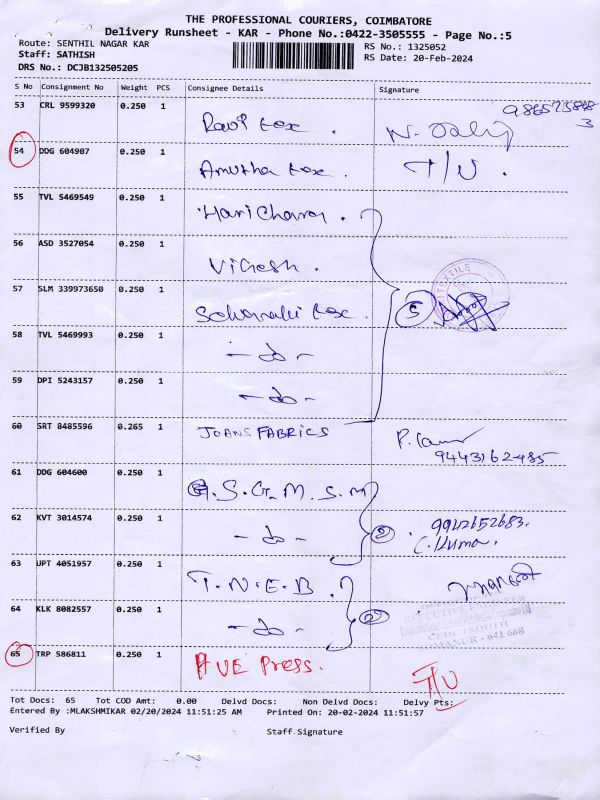 THE PROFESSIONAL COURIERS, COIMBATORE
Delivery Runsheet - KAR - Phone No.:0422-3505555 - Page No.:5
Route: SENTHIL NAGAR KAR
RS No.: 1325052
Staff: SATHISH
RS Date: 20-Feb-2024
DRS No.: DCJB132505205
S No Consignment No Weight PCS Consignee Details Signature
53 CRL 9599320 0.250 1 Ravi tex .
54 DDG 604907 0.250 1 Amutha tex . T/U .
55 TVL 5469549 0.250 1 Haricharan .
56 ASD 3527054 0.250 1 Vignesh .
TEXTILE
57 SLM 339973650 0.250 1 tex . 5
58 TVL 5469993 0.250 1 - do -
59 DPI 5243157 0.250 1 - do -
60 SRT 8485596 0.265 1 JOANS FABRICS
9443162485
61 DDG 604600 0.250 1 G.S.G.M.S.M
62 KVT 3014574 0.250 1 - do - 2 9942652683.
C. Kuma.
63 UPT 4051957 0.250 1 T.N.E.B .
64 KLK 8082557 0.250 1 - do - 2
641 668
65 TRP 586811 0.250 1 AVE Press. T/U
Tot Docs: 65 Tot COD Amt: 0.00 Delvd Docs: Non Delvd Docs: Delvy Pts:
Entered By :MLAKSHMIKAR 02/20/2024 11:51:25 AM Printed On: 20-02-2024 11:51:57
Verified By Staff Signature